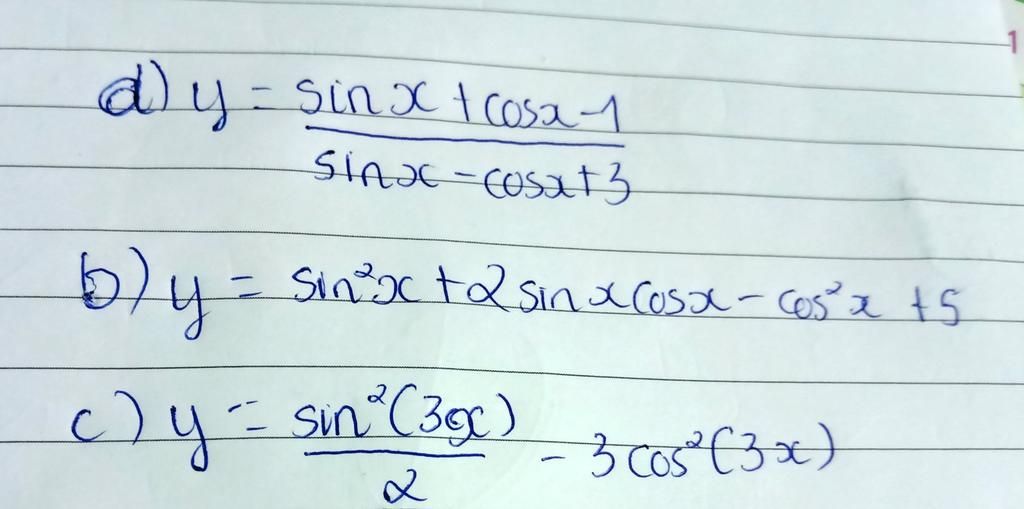 d) y = sinx + cosx - 1
sinx - cosx + 3
b) y = sin²x + 2 sinx cosx - cos²x + 5
c) y = sin²(3x)
2
- 3 cos²(3x)
1